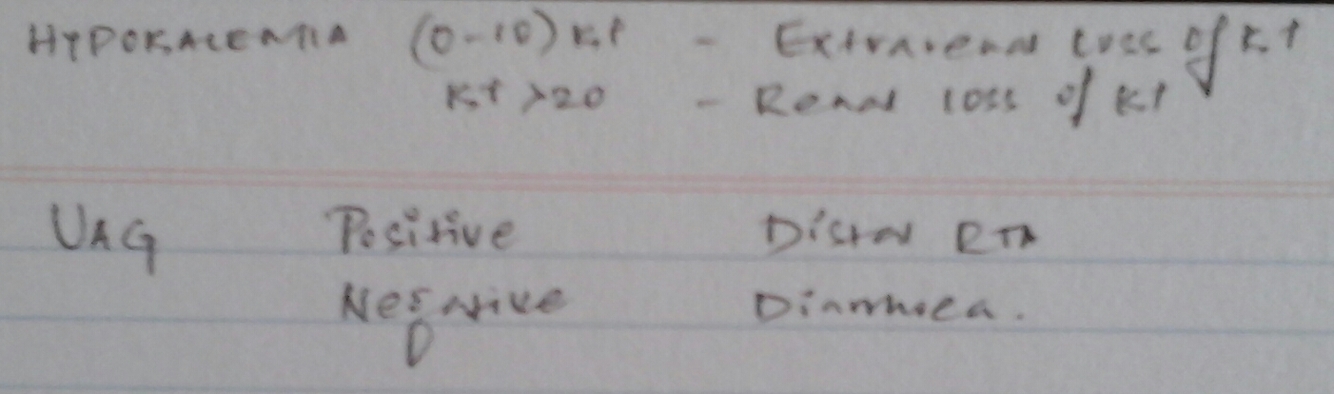 HYPOKALEMIA (0-10) K+ - Extrarenal loss of K+
K+ >20 - Renal loss of K+
UAG Positive Distal RTA
Negative Diarrhoea.